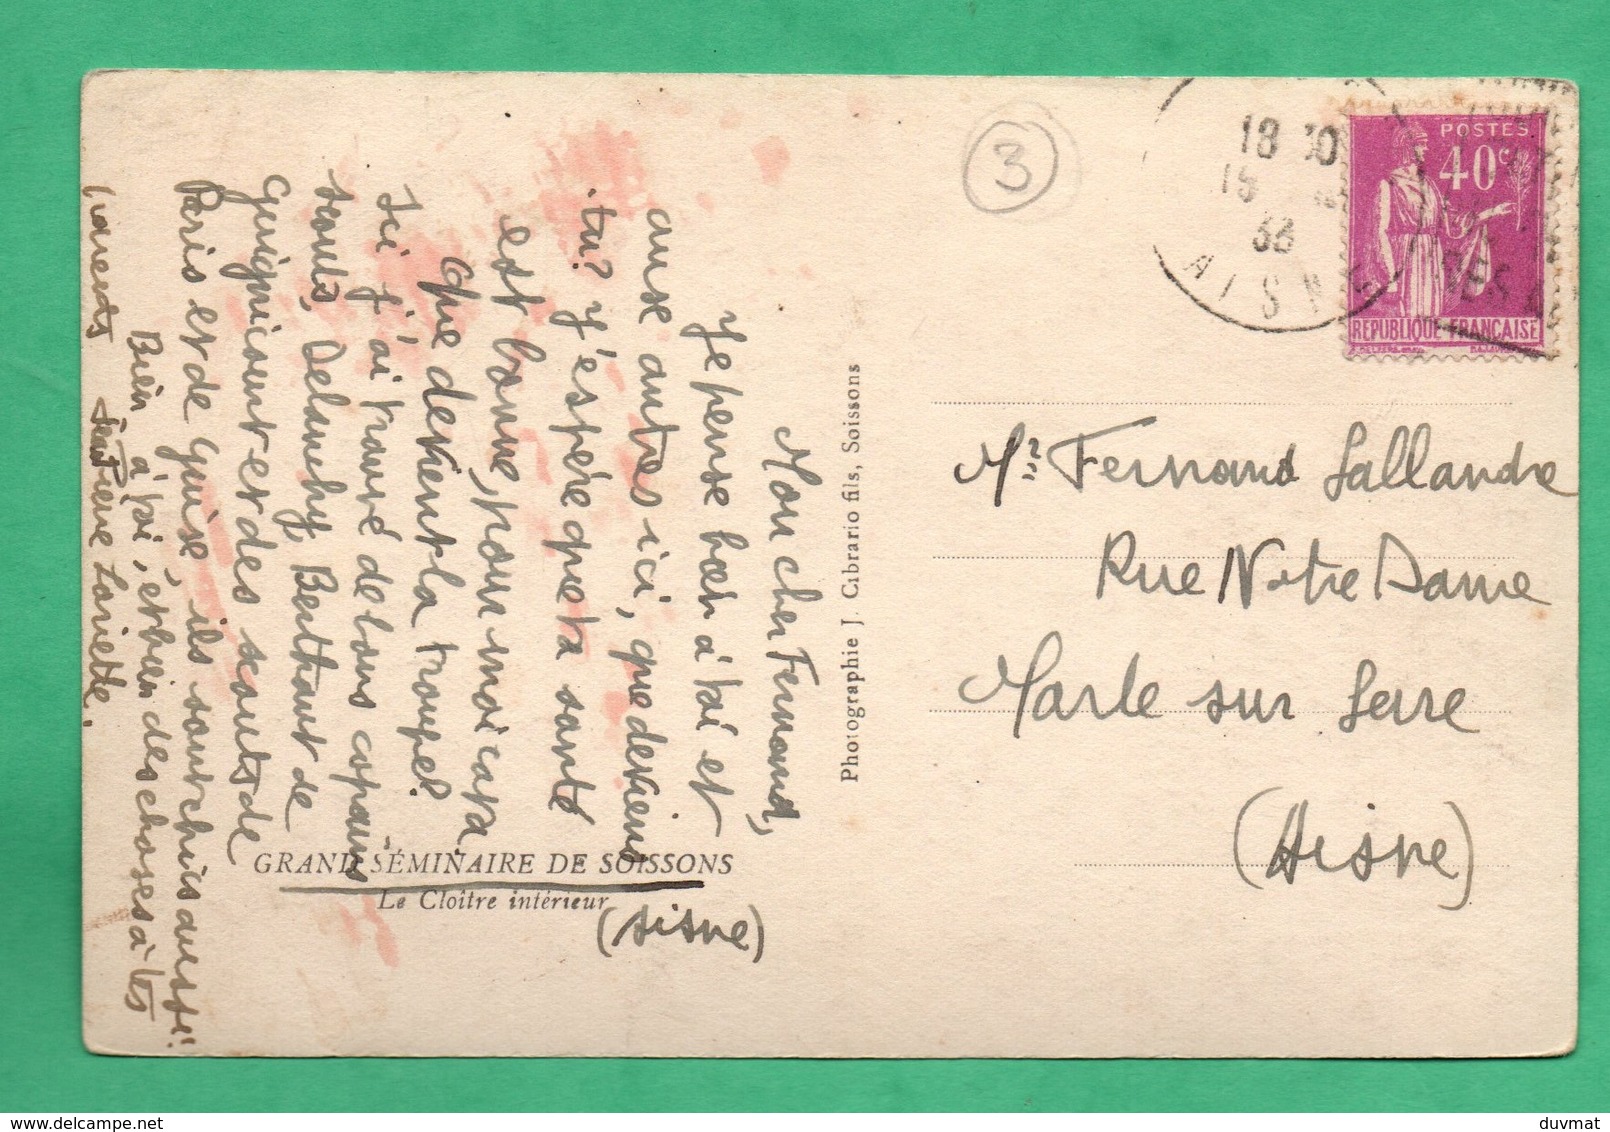 Mon cher Fernand,
Je pense bien à toi et
aux autres ici, que deviens
tu? J'espère que ta santé
est bonne, pour moi ça va
Que devient la troupe?
Ici j'ai trouvé de bons copains
scouts, Delanchy, Berthaut de
Guignicourt et des scouts de
Paris et de Guise, ils sont chics aussi.
Bien à toi, et bien des choses à tes
parents
Photographie J. Cibrario fils, Soissons
GRAND SÉMINAIRE DE SOISSONS
Le Cloître intérieur
(Aisne)
3
18 30
15
AISNE
POSTES
40c
REPUBLIQUE FRANÇAISE
Mr Fernand Lallandre
Rue Notre Dame
Marle sur Serre
(Aisne)
duvmat